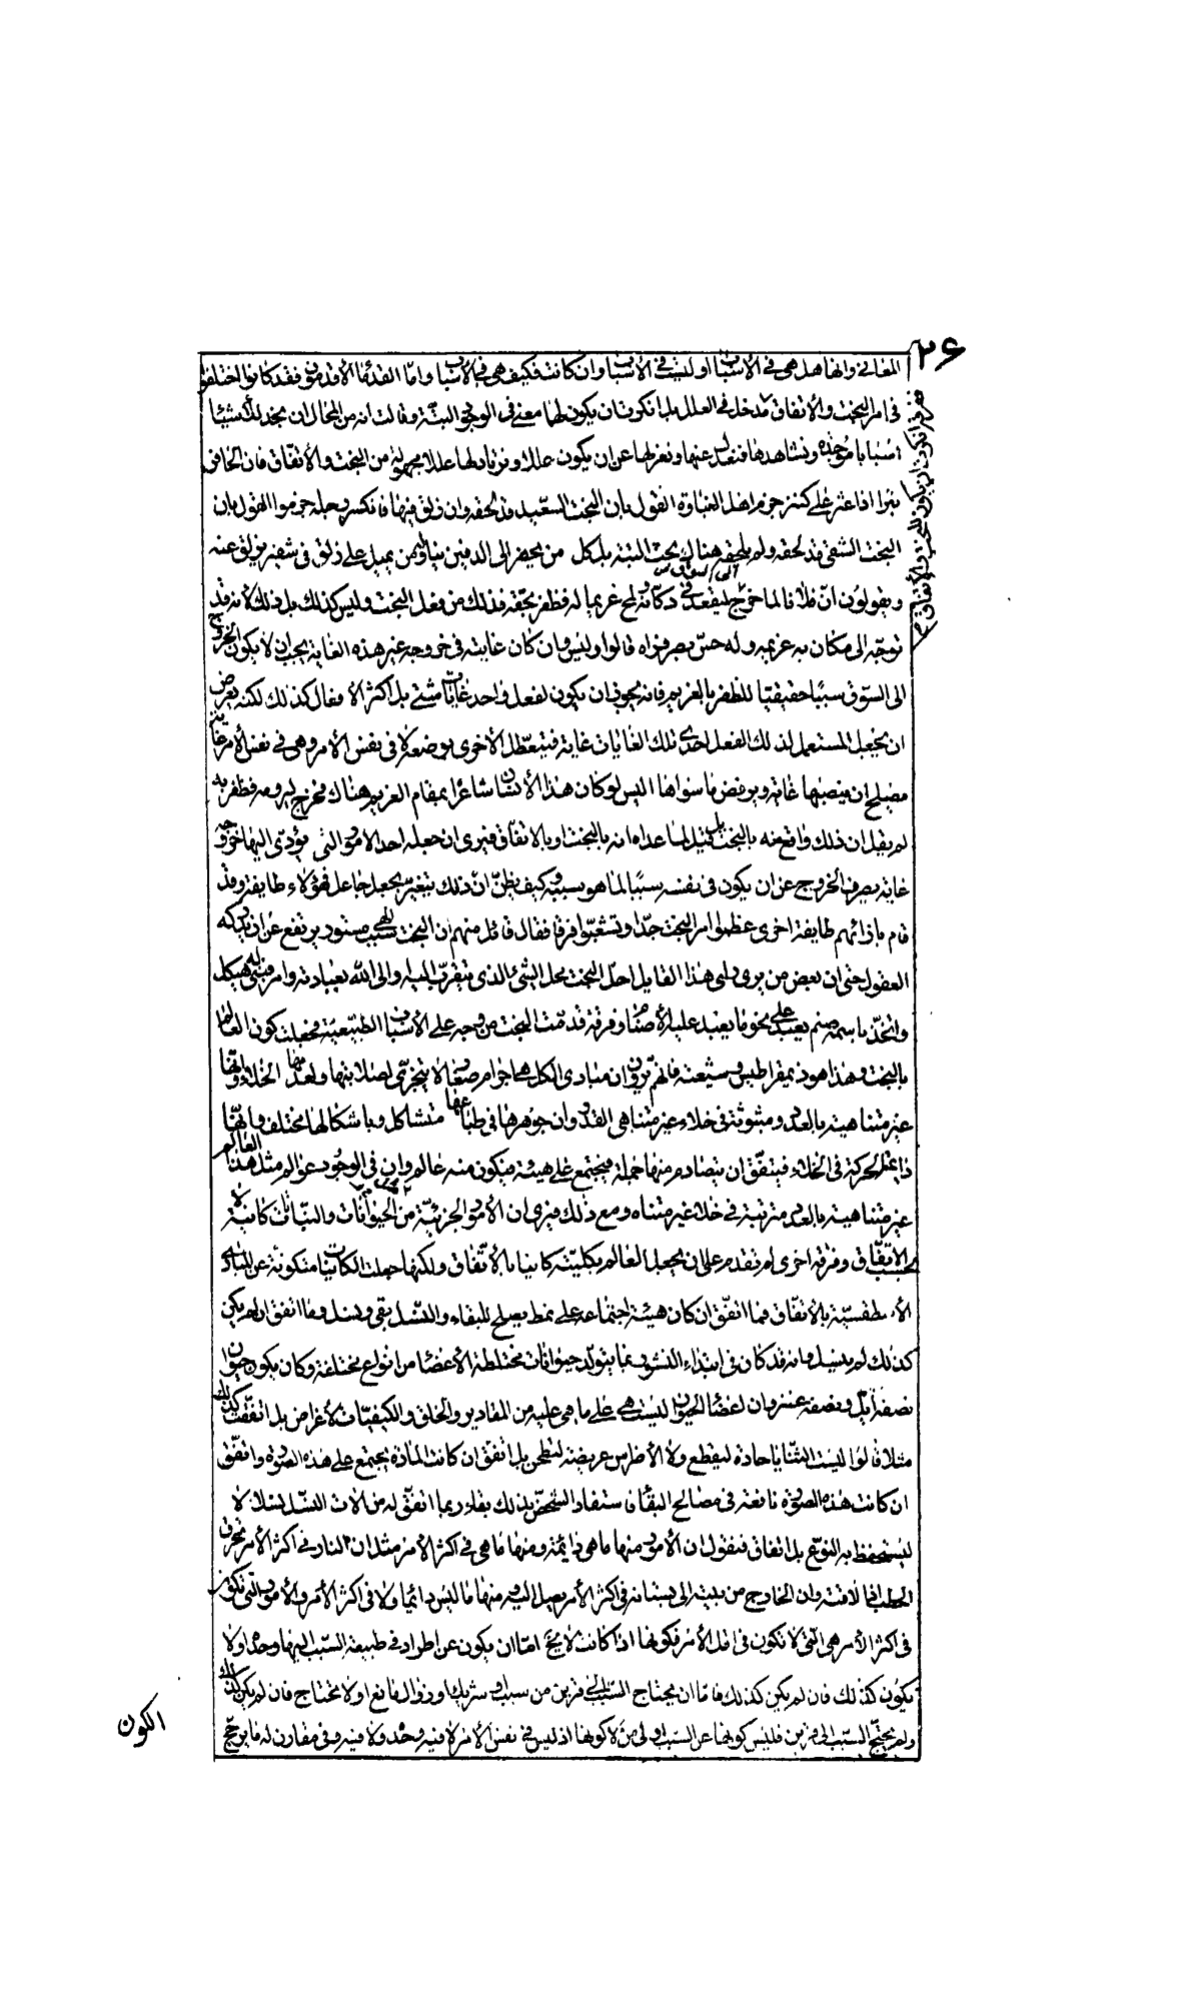 ٢۶
المعانى وانها هل هى فى الأسباب او ليست فى الأسباب وان كانت فكيف هى فى الأسباب واما القدماء الأقدمون فقد كانوا اختلفوا
فى امر البخت والأتفاق مدخل فى العلل بل انكرت ان يكون لهما معنى فى الوجود البتة وقالت انه من المحال ان نجد للأشياء
فرقة انكرت ان يكون للبخت والأتفاق
اسبابا موجبة ونشاهدها فنعدل عنها ونعزلها عن ان يكون عللا ونرتاد لها عللا مجهولة من البخت والأتفاق فان الحافر
بئرا اذا عثر على كنز جزم اهل الغباوة القول بان البخت السعيد قد لحقه وان زلق فيها فانكسر رجله جزموا القول بان
البخت الشقى قد لحقه ولم يلحقه هناك بخت البتة بل كل من يحفر الى الدفين يناله ومن يميل على زلق فى شفير يزلق عنه
ويقولون ان فلانا لما خرج ليقعد فى دكانه لمح غريما له فظفر بحقه فذلك من فعل البخت وليس كذلك بل ذلك لأنه قد
توجه الى مكان به غريمه وله حس بصر فراه قالوا وليس وان كان غايته فى خروجه غير هذه الغاية يجب ان لا يكون الخروج
الى السوق سببا حقيقيا للظفر بالغريم فانه يجوز ان يكون لفعل واحد غايات شتى بل اكثر الأفعال كذلك لكنه يعرض
ان يجعل المستعمل لذلك الفعل احدى تلك الغايات غاية فتتعطل الأخرى بوضعه لا فى نفس الأمر وهى فى نفس الأمر غاية
يصلح ان ينصبها غاية ويرفض ما سواها اليس لو كان هذا الأنسان شاعرا بمقام الغريم هناك فخرج يرومه فظفر به
لم يقل ان ذلك واقع منه بالبخت بل قيل لما عداه انه بالبخت او بالاتفاق فيرى ان جعله احد الامور التى يؤدى اليها خروجه
غاية يصرف الخروج عن ان يكون فى نفسه سببا لما هو سببه وكيف يظن ان ذلك يتغير بجعل جاعل فهؤلاء طايفة وقد
قام بازائهم طايفة اخرى عظموا امر البخت جدا وتشعبوا فرقا فقال قائل منهم ان البخت سبب الهى مستور يرتفع عن ان يدركه
العقول حتى ان بعض من يرى رأى هذا القايل احل البخت محل الشئ الذى يتقرب اليه والى الله بعبادته وامر فبنى له هيكل
واتخذ باسمه صنم يعبد على نحو ما يعبد عليه الأصنام وفرقة قدمت البخت من وجه على الأسباب الطبيعية فجعلت كون العالم
بالبخت وهذا هو ذيمقراطيس وشيعته فانهم يرون ان مبادى الكل هى اجرام صغار لا يتجزى لصلابتها ولعدمها الخلاء وانها
غير متناهية بالعدد ومبثوثة فى خلاء غير متناهى القدر وان جوهرها فى طباعها متشاكل وباشكالها مختلف وانها
دايمة الحركة فى الخلاء فيتفق ان يتصادم منها جملة فيجتمع على هيئة فيكون منه عالم وان فى الوجود عوالم مثل هذا العالم
غير متناهية بالعدد مترتبة فى خلاء غير متناه ومع ذلك فيرى ان الأمور الجزئية من الحيوانات والنباتات كائنة لا
بحسب الاتفاق وفرقة اخرى لم تقدم على ان يجعل العالم بكليته كاينا بالأتفاق ولكنها جعلت الكاينات متكونة عن المبادى
الأسطقسية بالاتفاق فما اتفق ان كان هيئة اجتماعه على نمط يصلح للبقاء والنسل بقى ونسل وما اتفق ان لم يكن
كذلك لم ينسل وانه قد كان فى ابتداء النشو ربما يتولد حيوانات مختلطة الأعضاء من انواع مختلفة وكان يكون حيوان
نصفه ايل ونصفه عنز وان اعضاء الحيوان ليست هى على ما هى عليه من المقادير والخلق والكيفيات لأغراض بل اتفقت كذلك
مثلا قالوا ليست الثنايا حادة ليقطع ولا الأضراس عريضة لتطحن بل اتفق ان كانت المادة يجتمع على هذه الصورة واتفق
ان كانت هذه الصورة نافعة فى مصالح البقاء فاستفاد الشخص بذلك بقاء وربما اتفق له من الات النسل نسلا لا
ليستحفظ به النوع بل اتفاقا فنقول ان الأمور منها ما هى دائمة ومنها ما هى فى اكثر الأمر مثل ان النار فى اكثر الأمر تحرق
الحطب اذا لاقته وان الخارج من بيته الى بستانه فى اكثر الأمر يصل اليه ومنها ما ليس دائما ولا فى اكثر الأمر والأمور التى تكون
فى اكثر الأمر هى التى لا تكون فى اقل الأمر فكونها اذا كانت لا يخ اما ان يكون عن اطراد فى طبيعة السبب اليها وحده او لا
يكون كذلك فان لم يكن كذلك فاما ان يحتاج السبب الى قرين من سبب او شريك او زوال مانع او لا يحتاج فان لم يكن كذلك
ولم يحتج السبب الى قرين فليس كونها عن السبب اولى من لا كونها اذ ليس فى نفس الأمر لا فيه وحده ولا فيه وفى مقارن له ما يرجح
الكون